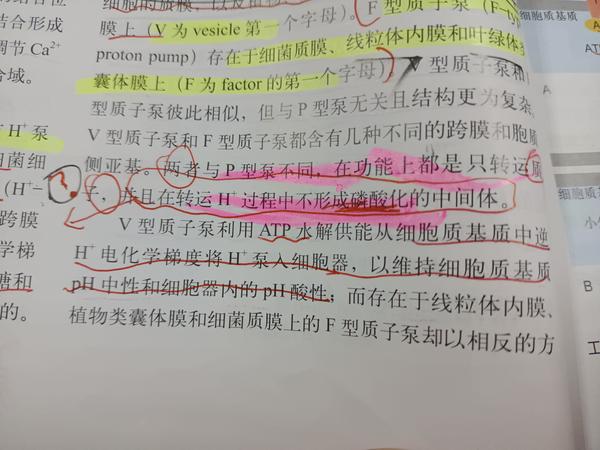 细胞的质膜
膜上（V 为 vesicle 第一个字母）。F 型质子泵（F-ty
proton pump）存在于细菌质膜、线粒体内膜和叶绿体
囊体膜上（F 为 factor 的第一个字母）。V 型质子泵和
型质子泵彼此相似，但与 P 型泵无关且结构更为复杂，
V 型质子泵和 F 型质子泵都含有几种不同的跨膜和胞质
侧亚基。两者与 P 型泵不同，在功能上都是只转运质
子，并且在转运 H⁺ 过程中不形成磷酸化的中间体。
V 型质子泵利用 ATP 水解供能从细胞质基质中逆
H⁺ 电化学梯度将 H⁺ 泵入细胞器，以维持细胞质基质
pH 中性和细胞器内的 pH 酸性；而存在于线粒体内膜、
植物类囊体膜和细菌质膜上的 F 型质子泵却以相反的方
结合形成
调节 Ca²⁺
合域。
H⁺ 泵
细菌细
（H⁺–
跨膜
学梯
糖和
的。
细胞质基质
A
细胞质基
B